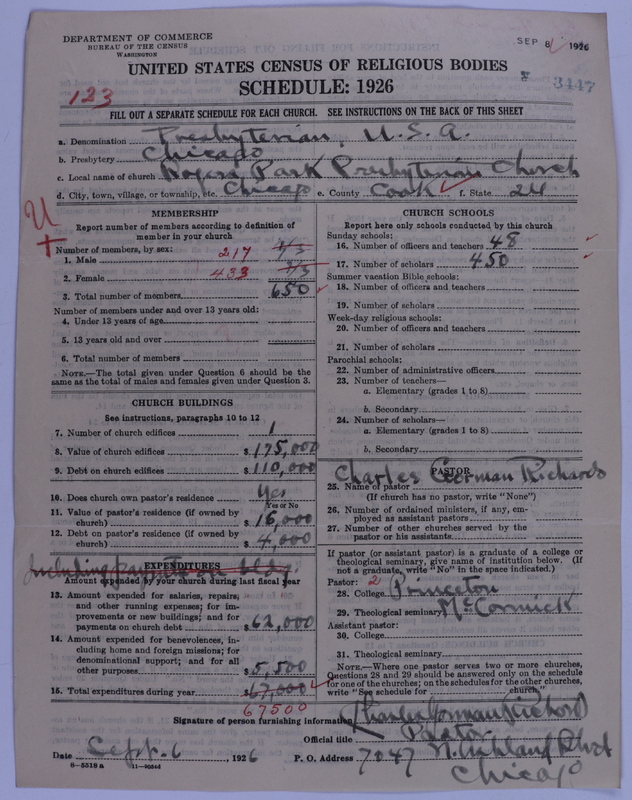 DEPARTMENT OF COMMERCE
BUREAU OF THE CENSUS
WASHINGTON
SEP 8 1926
UNITED STATES CENSUS OF RELIGIOUS BODIES
SCHEDULE: 1926
123
3447
FILL OUT A SEPARATE SCHEDULE FOR EACH CHURCH. SEE INSTRUCTIONS ON THE BACK OF THIS SHEET
a. Denomination Presbyterian, U.S.A.
b. Presbytery Chicago
c. Local name of church Rogers Park Presbyterian Church
d. City, town, village, or township, etc. Chicago e. County Cook f. State 24
U
MEMBERSHIP
Report number of members according to definition of
member in your church
Number of members, by sex:
1. Male 217 1/3
2. Female 433 2/3
3. Total number of members 650
Number of members under and over 13 years old:
4. Under 13 years of age
5. 13 years old and over
6. Total number of members
NOTE.—The total given under Question 6 should be
same as the total of males and females given under Question 3.
CHURCH BUILDINGS
See instructions, paragraphs 10 to 12
7. Number of church edifices 1
8. Value of church edifices $ 175,000
9. Debt on church edifices $ 110,000
10. Does church own pastor's residence Yes
Yes or No
11. Value of pastor's residence (if owned by
church) $ 16,000
12. Debt on pastor's residence (if owned by
church) $ 4,000
EXPENDITURES
Including payments on bldg.
Amount expended by your church during last fiscal year
13. Amount expended for salaries, repairs,
and other running expenses; for im-
provements or new buildings; and for
payments on church debt $ 62,000
14. Amount expended for benevolences, in-
cluding home and foreign missions; for
denominational support; and for all
other purposes $ 5,500
15. Total expenditures during year $ 67,000
67500
CHURCH SCHOOLS
Report here only schools conducted by this church
Sunday schools:
16. Number of officers and teachers 48
17. Number of scholars 450
Summer vacation Bible schools:
18. Number of officers and teachers
19. Number of scholars
Week-day religious schools:
20. Number of officers and teachers
21. Number of scholars
Parochial schools:
22. Number of administrative officers
23. Number of teachers—
a. Elementary (grades 1 to 8)
b. Secondary
24. Number of scholars—
a. Elementary (grades 1 to 8)
b. Secondary
PASTOR
25. Name of pastor Charles Gorman Richards
(If church has no pastor, write "None")
26. Number of ordained ministers, if any, em-
ployed as assistant pastors
27. Number of other churches served by the
pastor or his assistants
If pastor (or assistant pastor) is a graduate of a college or
theological seminary, give name of institution below. (If
not a graduate, write "No" in the space indicated.)
Pastor: 2
28. College Princeton
29. Theological seminary McCormick
Assistant pastor:
30. College
31. Theological seminary
NOTE.—Where one pastor serves two or more churches,
Questions 28 and 29 should be answered only on the schedule
for one of the churches; on the schedules for the other churches,
write "See schedule for church."
Signature of person furnishing information Charles Gorman Richards
Official title Pastor
Date Sept. 6, 1926 P. O. Address 7047 N. Ashland Blvd
Chicago
8—5518 a 11—90544